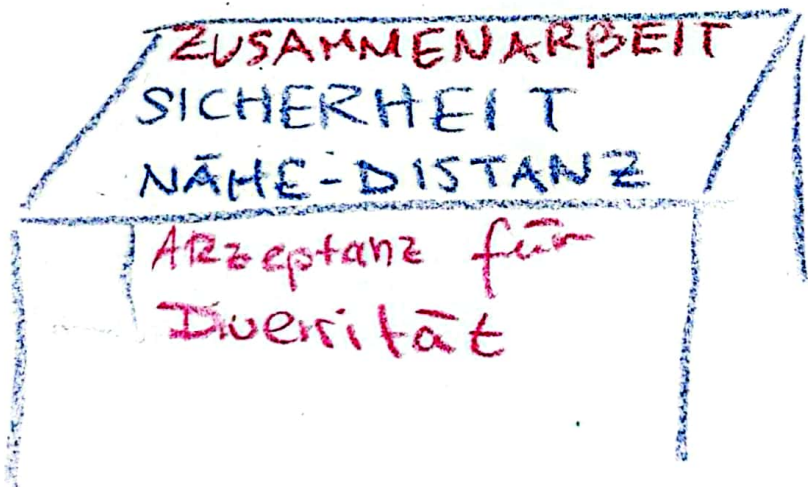 ZUSAMMENARBEIT
SICHERHEIT
NÄHE-DISTANZ
AKzeptanz für
Diversität